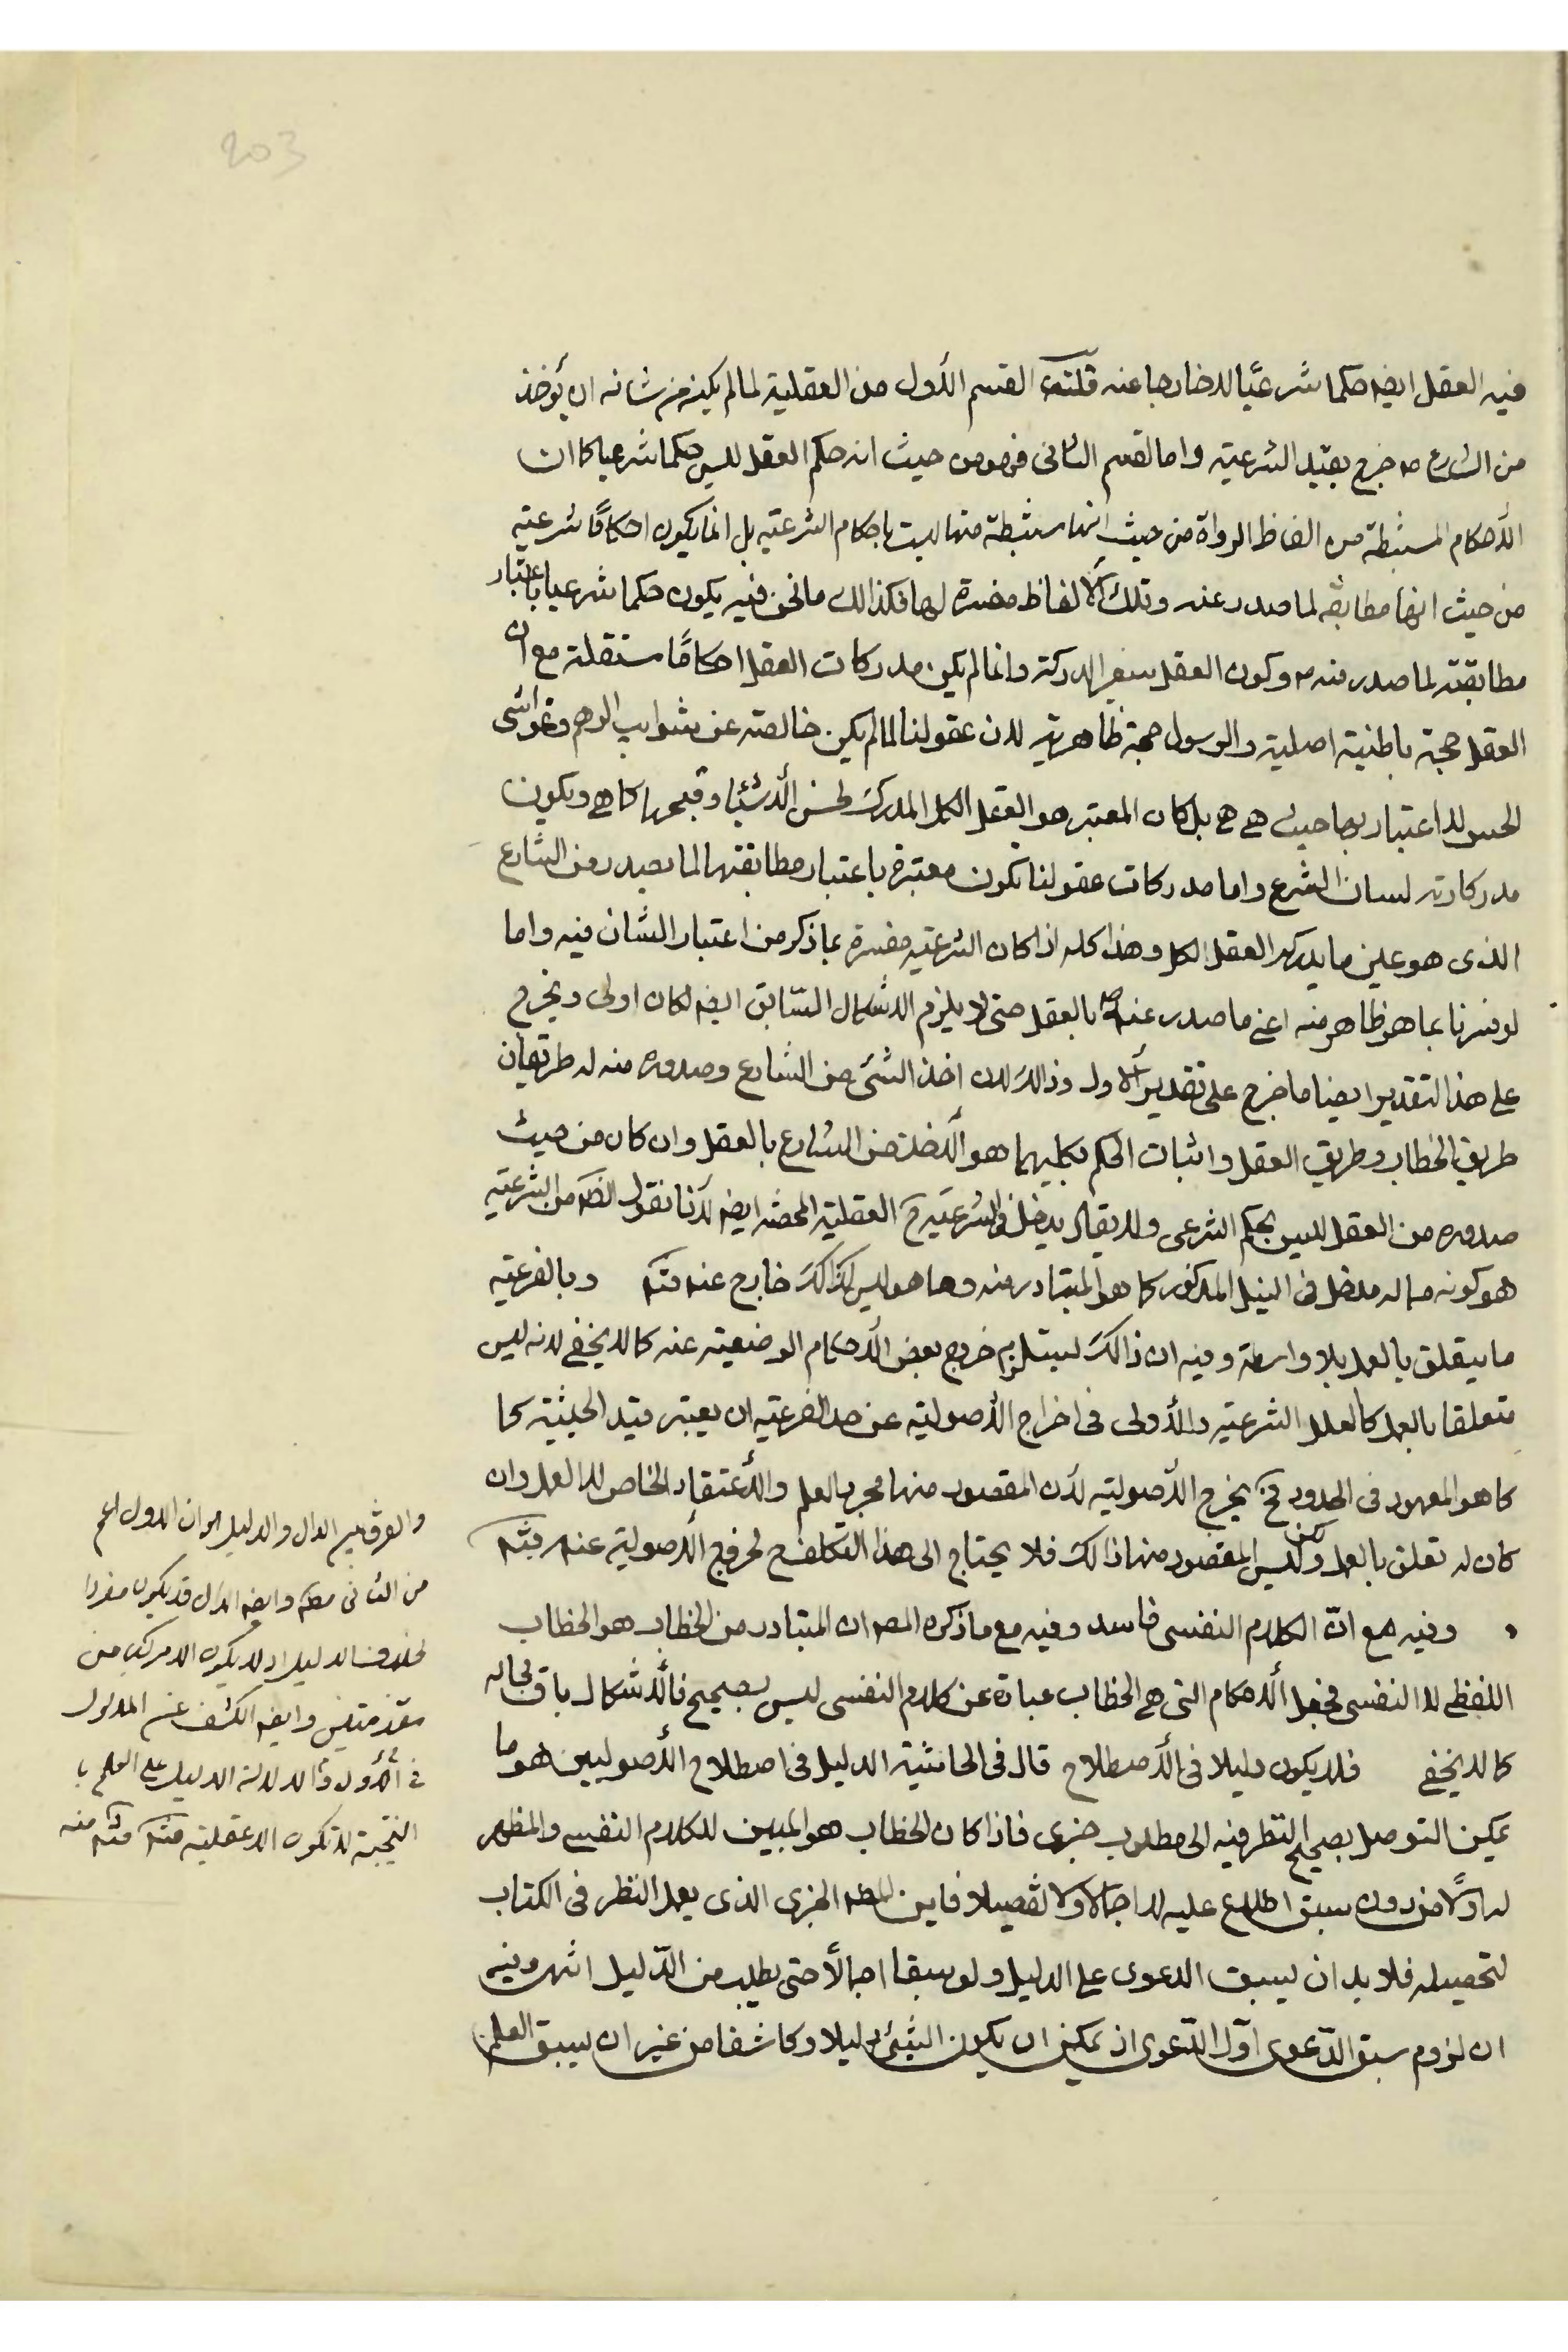 203
فيه العقل ايضه حكما شرعيّا لا خارجا عنه قلت القسم الأول من العقلية لما لم يكن من شانه ان يؤخذ
من الشارع ص خرج بقيد الشرعية واما القسم الثانى فهو من حيث انه حكم العقل ليس حكما شرعيا كما ان
الأحكام المستنبطة من الفاظ الرواة من حيث انها مستنبطة منها ليست باحكام الشرعية بل انما يكون احكامًا شرعية
من حيث انها مطابقة لما صدر عنه وتلك الالفاظ مفسرة لها فكذالك ما نحن فيه يكون حكما شرعيا باعتبار
مطابقته لما صدر منه ص وكون العقل مدركة وانما لم يكن مدركات العقل احكامًا مستقلة مع ان
العقل حجة باطنية اصلية والرسول حجة ظاهرية لان عقولنا لما لم يكن خالصته عن شوايب الوهم وغواشى
الحس لا اعتبار بها حيث هى هى بل كان المعتبر هو العقل الكل المدرك لحسن الأشياء وقبحها كما هى ويكون
مدركاته لسان الشرع واما مدركات عقولنا تكون معتبرة باعتبار مطابقتها لما يصدر من الشارع
الذى هو عين ما يدركه العقل الكل وهذا كله اذا كان الشرعية مفسرة بما ذكر من اعتبار الشان فيه واما
لو فسرنا بما هو ظاهر منه اعنى ما صدر عنه ص بالعقل حتى لا يلزم الاشكال السّابق ايضه لكان اولى ويخرج
على هذا التقدير ايضا ما خرج على تقدير الاول وذالك لان اخذ الشئ من الشارع وصدوره منه له طريقان
طريق الخطاب وطريق العقل واثبات الحكم بكليهما هو الأخذ من الشارع بالعقل وان كان من حيث
صدوره من العقل ليس بحكم الشرعى ولا يقال يدخل فى الشرعية ح العقلية المحضه ايضه لأنا نقول الظه من الشرعية
هو كونه مما له مدخل فى النيل المذكور كما هو المتبادر منه وما هو ليس كذالك خارج عنه منه وبالفرعية
ما يتعلق بالعمل بلا واسطة وفيه ان ذالك ليستلزم خروج بعض الأحكام الوضعية عنه كما لا يخفى لانه ليس
متعلقا بالعمل كالعلل الشرعية والأولى فى اخراج الأصولية عن حد الفرعية ان يعتبر قيد الحيثية كما
كما هو المعهود فى الحدود فح يخرج الأصولية لأن المقصود منها مجرد العلم والأعتقاد الخاص لا العمل وان
كان له تعلق بالعمل ولكن ليس المقصود منها ذالك فلا يحتاج الى هذا التكلف لخروج الأصولية عنه منه
وفيه مع انّ الكلام النفسى فاسد وفيه مع ما ذكره المصه ان المتبادر من الخطاب هو الخطاب
اللفظى لا النفسى فجعل الأحكام التى هى الخطاب عبارة عن كلام النفسى ليس بصحيح فالأشكال باق بحاله
كما لا يخفى فلا يكون دليلا فى الأصطلاح قال فى الحاشية الدليل فى اصطلاح الأصوليين هو ما
يمكن التوصل بصحيح النظر فيه الى مطلوب خبرى فاذا كان الخطاب هو المبين للكلام النفسى والمظهر
له اولًا من دون سبق اطلاع عليه لا اجمالا ولا تفصيلا فاين المطه الخبرى الذى يعمل النظر فى الكتاب
لتحصيله فلا بد ان يسبق الدعوى على الدليل ولو سبقا اجمالًا حتى يطلب من الدّليل انتهى وفيه
ان لزوم سبق الدّعوى اوّل الدّعوى اذ يمكن ان يكون الشئ دليلا وكاشفا من غير ان يسبق العلم
والفرق بين الدال والدليل هو ان الاول اعم
من الثانى مطه وايضه الدال قد يكون مفردا
بخلاف الدليل اذ لا يكون الا مركب من
مقدمتين وايضه الكشف عن المدلول
فى الأول والا دلالة الدليل على العلم با
النتيجة لا تكون الا عقلية منه منه